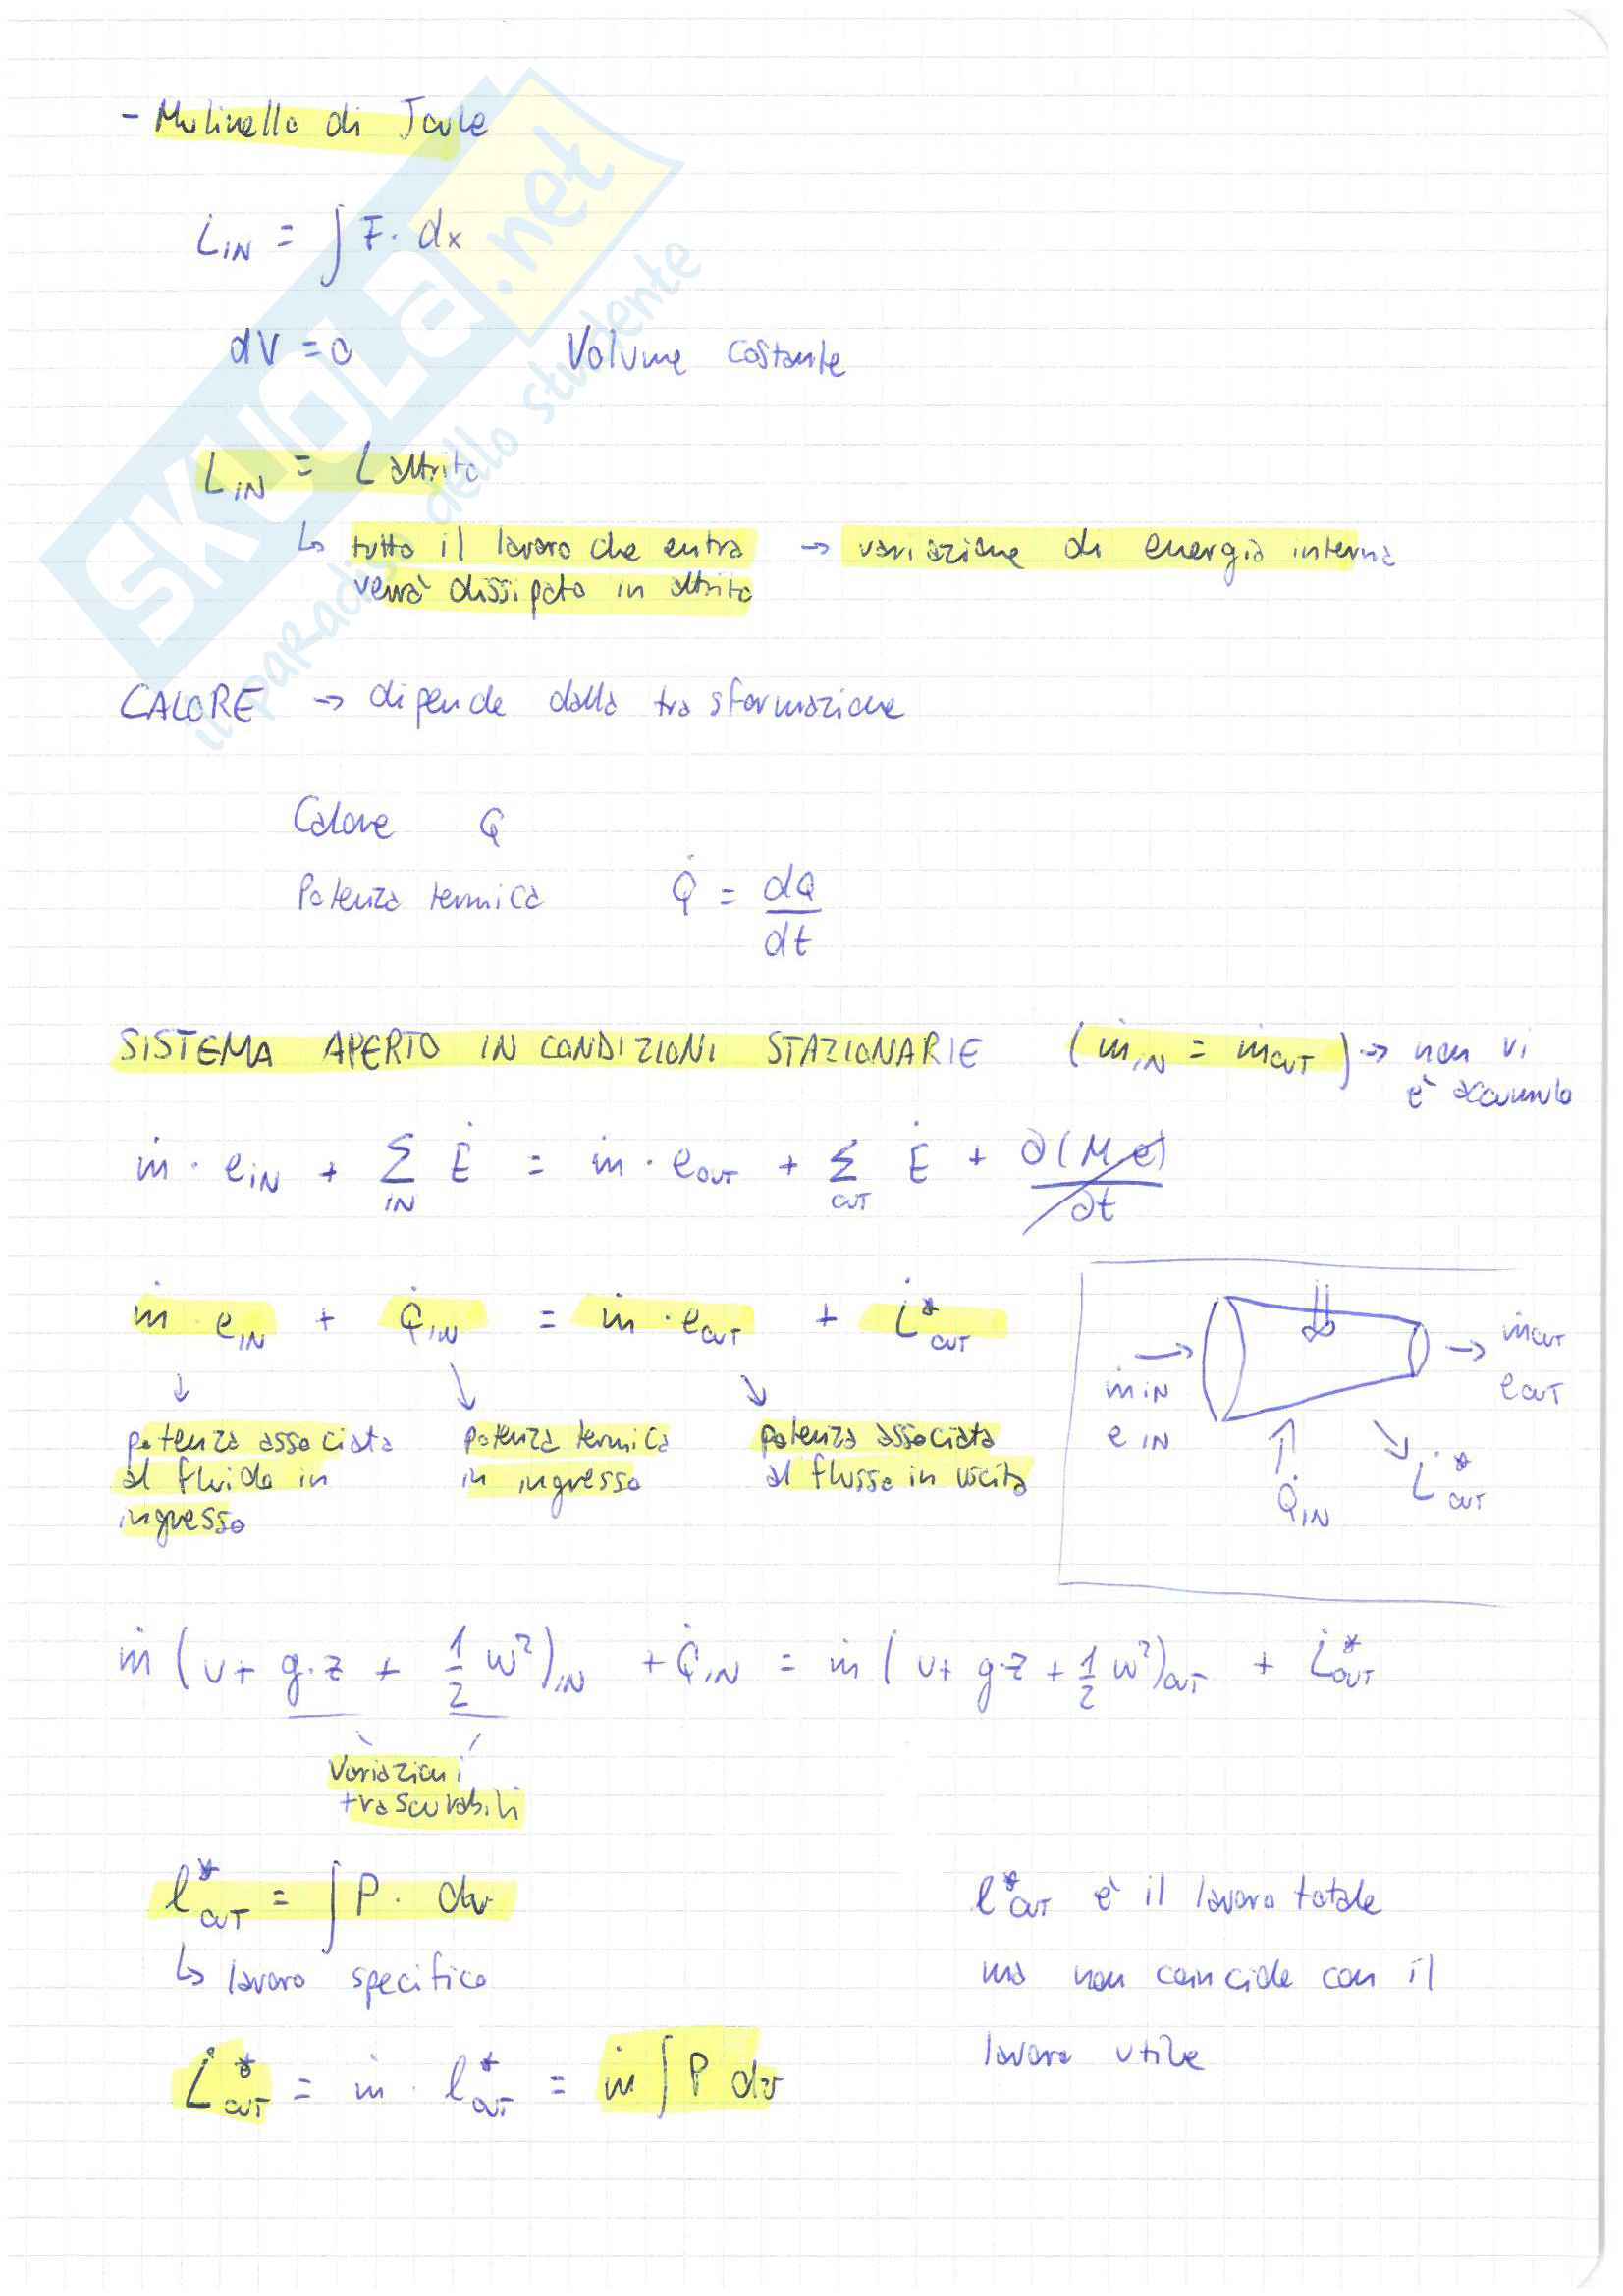 - Mulinello di Joule
L_IN = ∫ F · dx
dV = 0 Volume costante
L_IN = L attrito
↳ tutto il lavoro che entra → variazione di energia interna
verrà dissipato in attrito
CALORE → dipende dalla trasformazione
Calore Q
Potenza termica Q̇ = dQ/dt
SISTEMA APERTO IN CONDIZIONI STAZIONARIE (ṁ_IN = ṁ_OUT) → non vi
è accumulo
ṁ · e_IN + Σ_IN Ė = ṁ · e_OUT + Σ_OUT Ė + ∂(M e)/∂t
ṁ e_IN + Q̇_IN = ṁ · e_OUT + L̇*_OUT
↓ ↘ ↘
potenza associata
al fluido in
ingresso
potenza termica
in ingresso
potenza associata
al flusso in uscita
→ ṁ_IN
e_IN
→ ṁ_OUT
e_OUT
↑ Q̇_IN
↘ L̇*_OUT
ṁ (u + g·z + 1/2 w²)_IN + Q̇_IN = ṁ (u + g·z + 1/2 w²)_OUT + L̇*_OUT
Variazioni
trascurabili
l*_OUT = ∫ P · dv
↳ lavoro specifico
l*_OUT è il lavoro totale
ma non coincide con il
lavoro utile
L̇*_OUT = ṁ · l*_OUT = ṁ ∫ P dv
SKUOLA.net
il paradiso dello studente